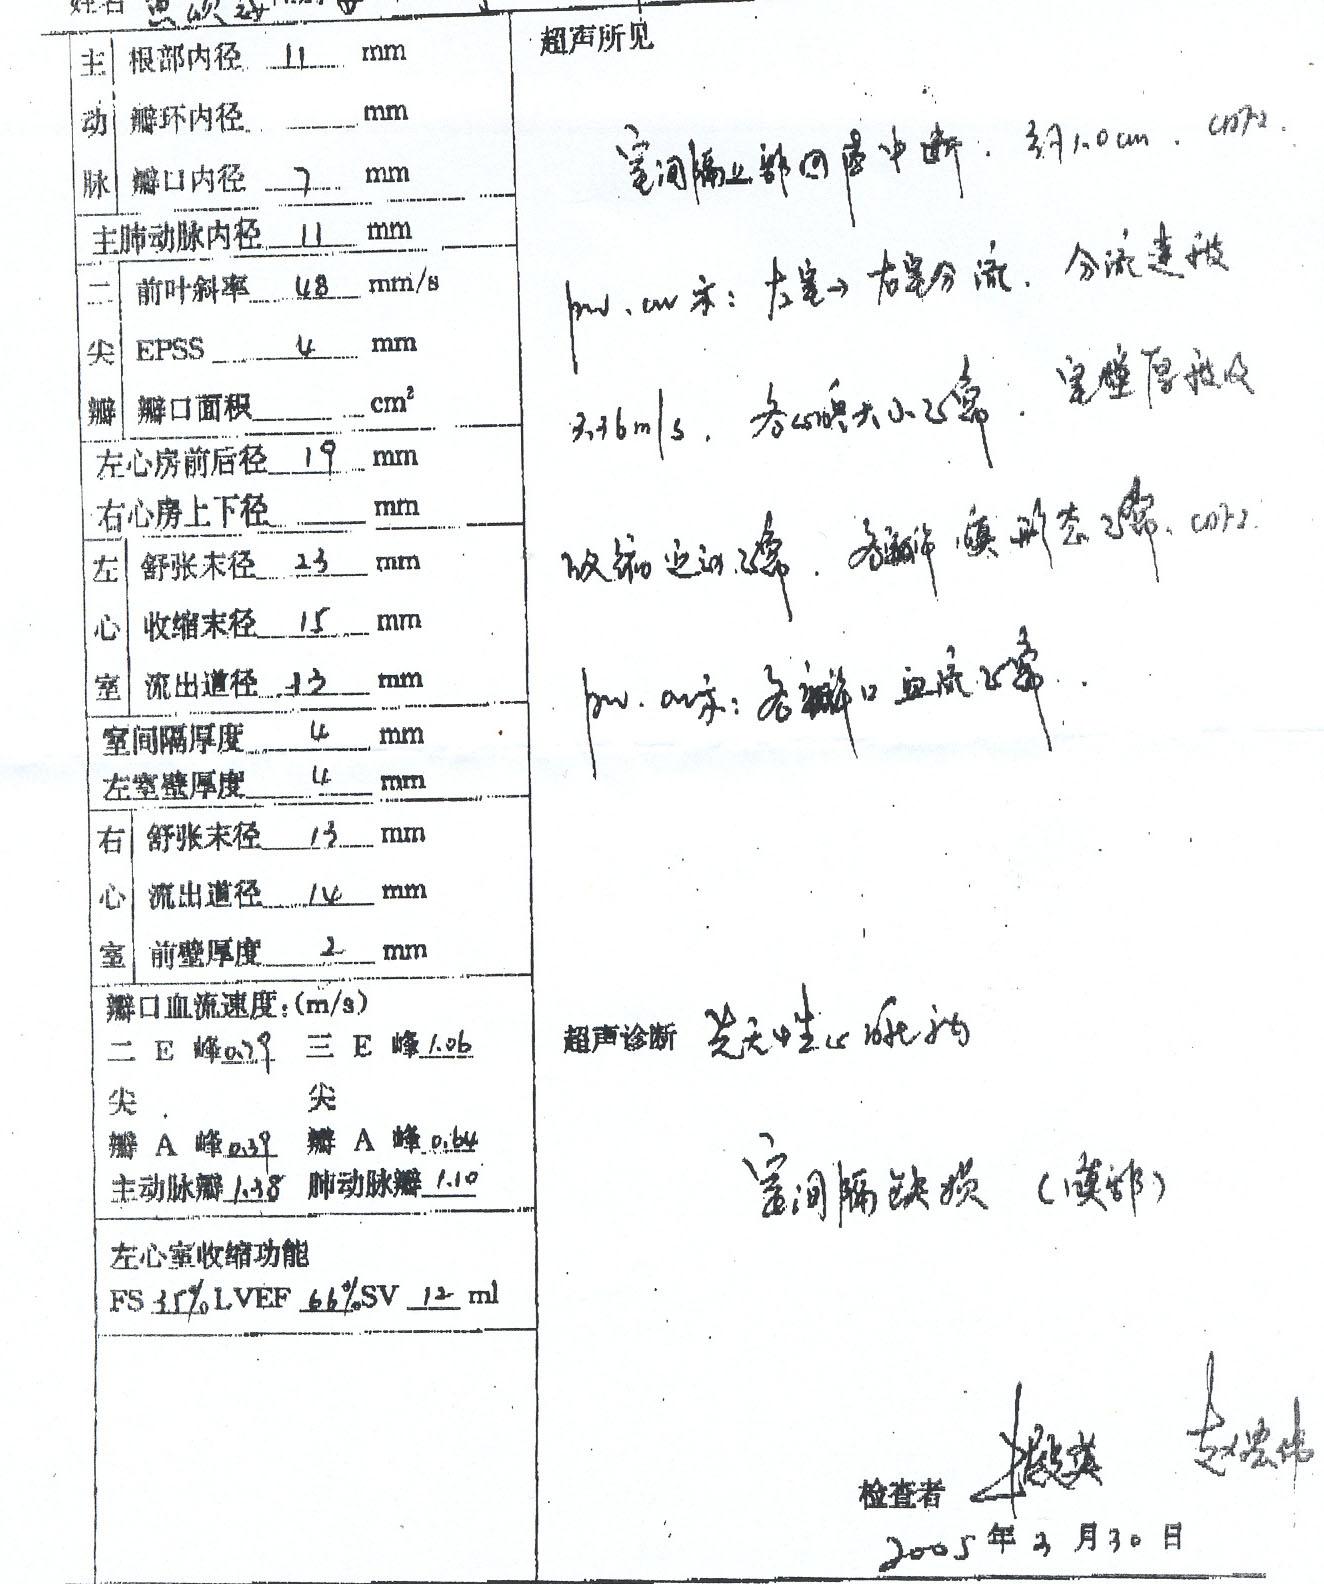 姓名
主 根部内径 11 mm
动 瓣环内径 mm
脉 瓣口内径 7 mm
主肺动脉内径 11 mm
二 前叶斜率 48 mm/s
尖 EPSS 4 mm
瓣 瓣口面积 cm²
左心房前后径 19 mm
右心房上下径 mm
左 舒张末径 23 mm
心 收缩末径 15 mm
室 流出道径 13 mm
室间隔厚度 4 mm
左室壁厚度 4 mm
右 舒张末径 13 mm
心 流出道径 14 mm
室 前壁厚度 2 mm
瓣口血流速度:(m/s)
二 E 峰 0.79 三 E 峰 1.06
尖 尖
瓣 A 峰 0.39 瓣 A 峰 0.64
主动脉瓣 1.38 肺动脉瓣 1.10
左心室收缩功能
FS 35% LVEF 66% SV 12 ml
超声所见
室间隔上部回声中断. 约1.0cm.
pw.cw示: 左室→右室分流. 分流速度
3.36m/s. 各心腔大小正常. 室壁厚度及
收缩运动正常. 各瓣膜形态正常.
pw.cw示: 各瓣口血流正常.
超声诊断 先天性心脏病
室间隔缺损 (膜部)
检查者
2005年3月30日